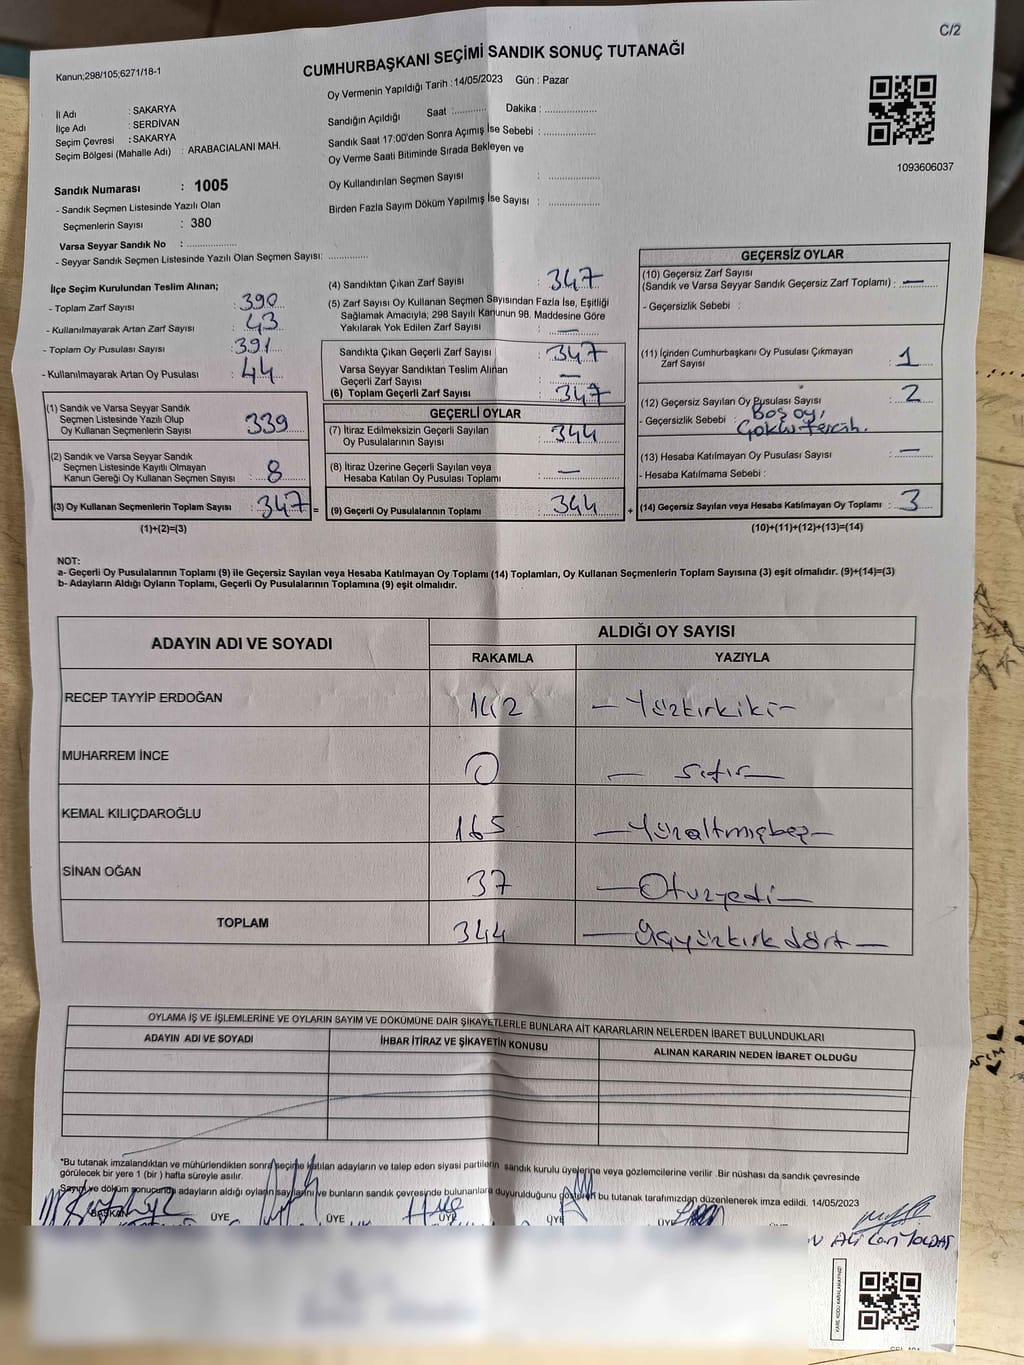 C/2
Kanun;298/105;6271/18-1
CUMHURBAŞKANI SEÇİMİ SANDIK SONUÇ TUTANAĞI
Oy Vermenin Yapıldığı Tarih : 14/05/2023 Gün : Pazar
İl Adı : SAKARYA
İlçe Adı : SERDİVAN
Seçim Çevresi : SAKARYA
Seçim Bölgesi (Mahalle Adı) : ARABACIALANI MAH.
Sandığın Açıldığı Saat :........... Dakika :................
Sandık Saat 17:00'den Sonra Açımış İse Sebebi :................
Oy Verme Saati Bitiminde Sırada Bekleyen ve
Oy Kullandırılan Seçmen Sayısı :................
Birden Fazla Sayım Döküm Yapılmış İse Sayısı :................
1093606037
Sandık Numarası : 1005
- Sandık Seçmen Listesinde Yazılı Olan
Seçmenlerin Sayısı : 380
Varsa Seyyar Sandık No :................
- Seyyar Sandık Seçmen Listesinde Yazılı Olan Seçmen Sayısı:.............
İlçe Seçim Kurulundan Teslim Alınan;
- Toplam Zarf Sayısı : 390
- Kullanılmayarak Artan Zarf Sayısı : 43
- Toplam Oy Pusulası Sayısı : 391
- Kullanılmayarak Artan Oy Pusulası : 44
(1) Sandık ve Varsa Seyyar Sandık
Seçmen Listesinde Yazılı Olup
Oy Kullanan Seçmenlerin Sayısı : 339
(2) Sandık ve Varsa Seyyar Sandık
Seçmen Listesinde Kayıtlı Olmayan
Kanun Gereği Oy Kullanan Seçmen Sayısı : 8
(3) Oy Kullanan Seçmenlerin Toplam Sayısı : 347 =
(1)+(2)=(3)
(4) Sandıktan Çıkan Zarf Sayısı : 347
(5) Zarf Sayısı Oy Kullanan Seçmen Sayısından Fazla İse, Eşitliği
Sağlamak Amacıyla; 298 Sayılı Kanunun 98. Maddesine Göre
Yakılarak Yok Edilen Zarf Sayısı : —
Sandıkta Çıkan Geçerli Zarf Sayısı : 347
Varsa Seyyar Sandıktan Teslim Alınan
Geçerli Zarf Sayısı : —
(6) Toplam Geçerli Zarf Sayısı : 347
GEÇERLİ OYLAR
(7) İtiraz Edilmeksizin Geçerli Sayılan
Oy Pusulalarının Sayısı : 344
(8) İtiraz Üzerine Geçerli Sayılan veya
Hesaba Katılan Oy Pusulası Toplamı : —
(9) Geçerli Oy Pusulalarının Toplamı : 344 +
GEÇERSİZ OYLAR
(10) Geçersiz Zarf Sayısı
(Sandık ve Varsa Seyyar Sandık Geçersiz Zarf Toplamı) : —
- Geçersizlik Sebebi :
(11) İçinden Cumhurbaşkanı Oy Pusulası Çıkmayan
Zarf Sayısı : 1
(12) Geçersiz Sayılan Oy Pusulası Sayısı : 2
- Geçersizlik Sebebi : Boş oy,
Çoklu tercih.
(13) Hesaba Katılmayan Oy Pusulası Sayısı : —
- Hesaba Katılmama Sebebi :
(14) Geçersiz Sayılan veya Hesaba Katılmayan Oy Toplamı : 3
(10)+(11)+(12)+(13)=(14)
NOT:
a- Geçerli Oy Pusulalarının Toplamı (9) ile Geçersiz Sayılan veya Hesaba Katılmayan Oy Toplamı (14) Toplamları, Oy Kullanan Seçmenlerin Toplam Sayısına (3) eşit olmalıdır. (9)+(14)=(3)
b- Adayların Aldığı Oyların Toplamı, Geçerli Oy Pusulalarının Toplamına (9) eşit olmalıdır.
ADAYIN ADI VE SOYADI ALDIĞI OY SAYISI
RAKAMLA YAZIYLA
RECEP TAYYİP ERDOĞAN 142 — Yüzkırkiki —
MUHARREM İNCE 0 — sıfır —
KEMAL KILIÇDAROĞLU 165 — Yüzaltmışbeş —
SİNAN OĞAN 37 — Otuzyedi —
TOPLAM 344 — Üçyüzkırkdört —
OYLAMA İŞ VE İŞLEMLERİNE VE OYLARIN SAYIM VE DÖKÜMÜNE DAİR ŞİKAYETLERLE BUNLARA AİT KARARLARIN NELERDEN İBARET BULUNDUKLARI
ADAYIN ADI VE SOYADI İHBAR İTİRAZ VE ŞİKAYETİN KONUSU ALINAN KARARIN NEDEN İBARET OLDUĞU
*Bu tutanak imzalandıktan ve mühürlendikten sonra seçime katılan adayların ve talep eden siyasi partilerin sandık kurulu üyelerine veya gözlemcilerine verilir .Bir nüshası da sandık çevresinde
görülecek bir yere 1 (bir ) hafta süreyle asılır.
Sayım ve döküm sonucunda adayların aldığı oyların sayılarını ve bunların sandık çevresinde bulunanlara duyurulduğunu gösteren bu tutanak tarafımızdan düzenlenerek imza edildi. 14/05/2023
BAŞKAN ÜYE ÜYE ÜYE ÜYE ÜYE
Ali Can